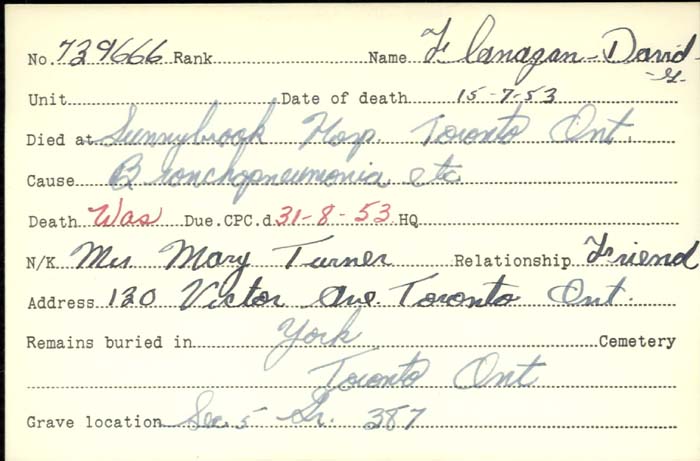 No. 739666 Rank Name Flanagan - David
- G -
Unit Date of death 15-7-53
Died at Sunnybrook Hosp. Toronto Ont.
Cause Bronchopneumonia etc
Death Was Due. CPC.d 31-8-53 HQ
N/K Mrs Mary Turner Relationship Friend
Address 120 Victor Ave Toronto Ont.
Remains buried in York Cemetery
Toronto Ont
Grave location Sec. 5 Gr. 387